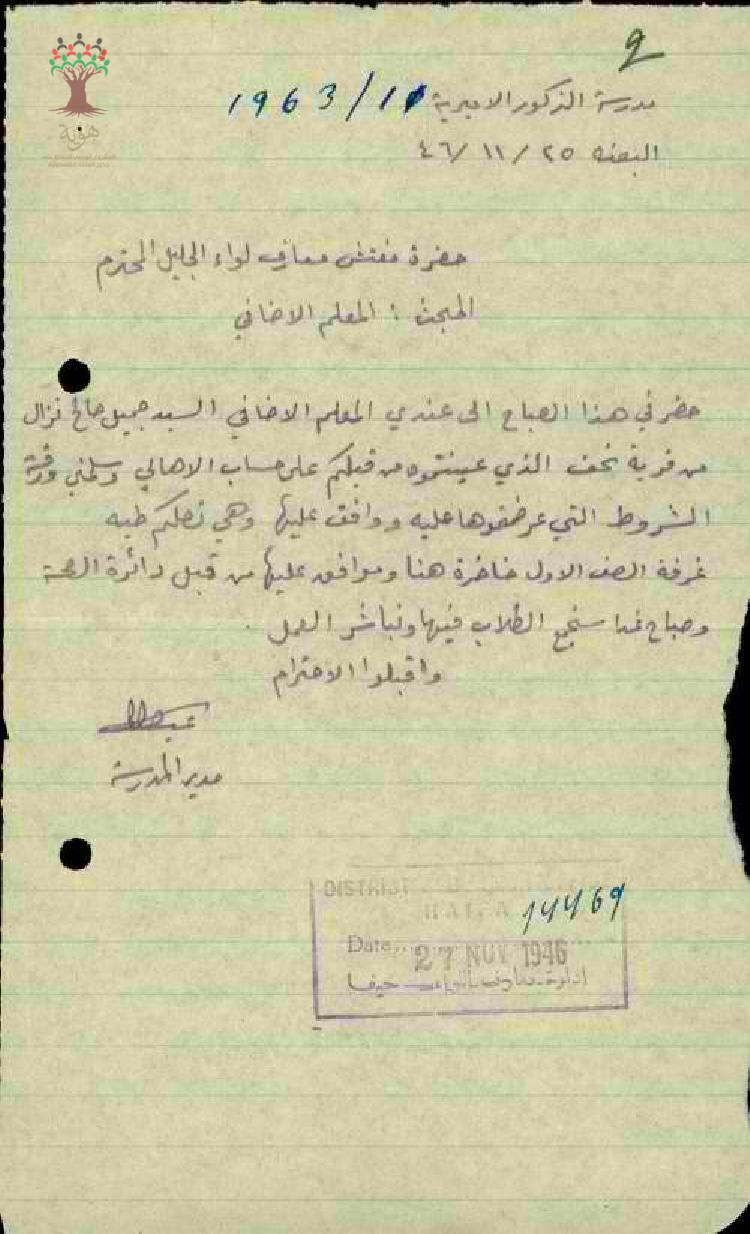 9
مدرسة الذكور الاميرية 1963/11
البعنه ٢٥ / ١١ / ٤٦
هوية
حضرة مفتش معارف لواء الجليل المحترم
المبحث : المعلم الاضافي
حضرني هذا الصباح الى عندي المعلم الاضافي السيد جميل صالح نزال
من قرية نحف الذي عينتموه من قبلكم على حساب الاهالي وسلمني ورقة
الشروط التي عرضتموها عليه ووافق عليها وهي تصلكم طيه
غرفة الصف الاول حاضرة هنا وموافق عليها من قبل دائرة الصحة
وصباح غدا سنجمع الطلاب فيها ونباشر العمل .
واقبلوا الاحترام
مدير المدرسة
DISTRICT
HAIFA
14469
Date 27 NOV 1946
ادارة معارف لواء حيفا